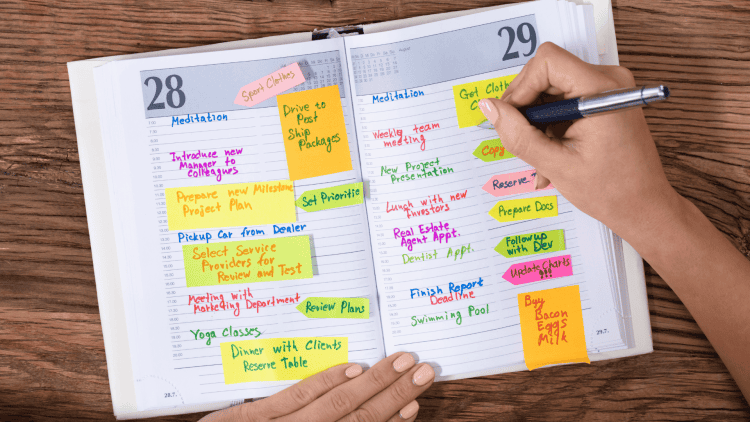 28
Sport Clothes
Meditation
Drive to
Post
Ship
Packages
Introduce new
Manager to
Colleagues
Prepare new Milestone
Project Plan
Set Prioritie
Pickup Car from Dealer
Select Service
Providers for
Review and Test
Meeting with
Marketing Department
Review Plans
Yoga Classes
Dinner with Clients
Reserve Table
28.7.
August
29
Meditation
Get Cloth
Weekly team
meeting
Copy
New Project
Presentation
Reserve
Lunch with new
Investors
Prepare Docs
Real Estate
Agent Appt.
Dentist Appt.
Followup
with Dev
Update Charts
!!!
Finish Report
Deadline
Swimming Pool
Buy
Bacon
Eggs
Milk
29.7.